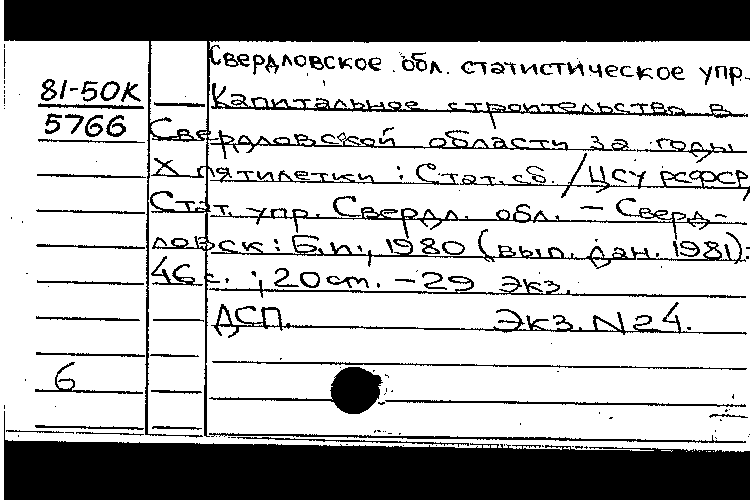 Свердловское обл. статистическое упр.
81-50К
Капитальное строительство в
5766
Свердловской области за годы
X пятилетки : Стат. сб. / ЦСУ РСФСР,
Стат. упр. Свердл. обл. – Сверд-
ловск : Б.п., 1980 (вып. дан. 1981).
46 с. ; 20 см. – 29 экз.
ДСП. Экз. N 24.
6